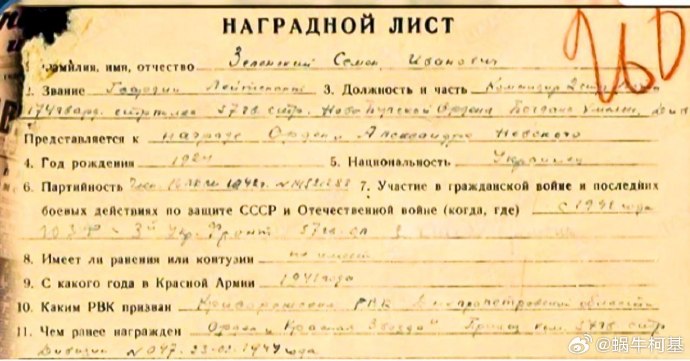 НАГРАДНОЙ ЛИСТ
260
1. Фамилия, имя, отчество Зеленский Семен Иванович
2. Звание Гвардии Лейтенант 3. Должность и часть Командир
174 гвард. стр. полка 57 гв. стр. Ордена Богдана
Представляется к награде Ордена Александра Невского
4. Год рождения 1924 5. Национальность Украинец
6. Партийность 1942 г. 7. Участие в гражданской войне и последних
боевых действиях по защите СССР и Отечественной войне (когда, где) с 1941 года
ЮЗФ - 3й Укр. Фронт 57 гв. сд
8. Имеет ли ранения или контузии не имеет
9. С какого года в Красной Армии 1941 года
10. Каким РВК призван РВК Днепропетровской области
11. Чем ранее награжден Орден Красная Звезда 57 гв. стр.
Дивизии № 047. 23.03.1944 года
@蜗牛柯基